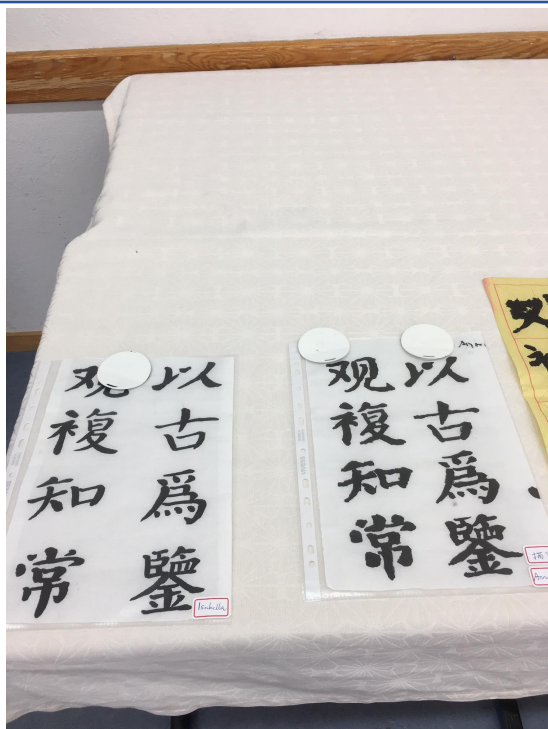 以古爲鑒
观複知常
Isabella
以古爲鑒
观複知常